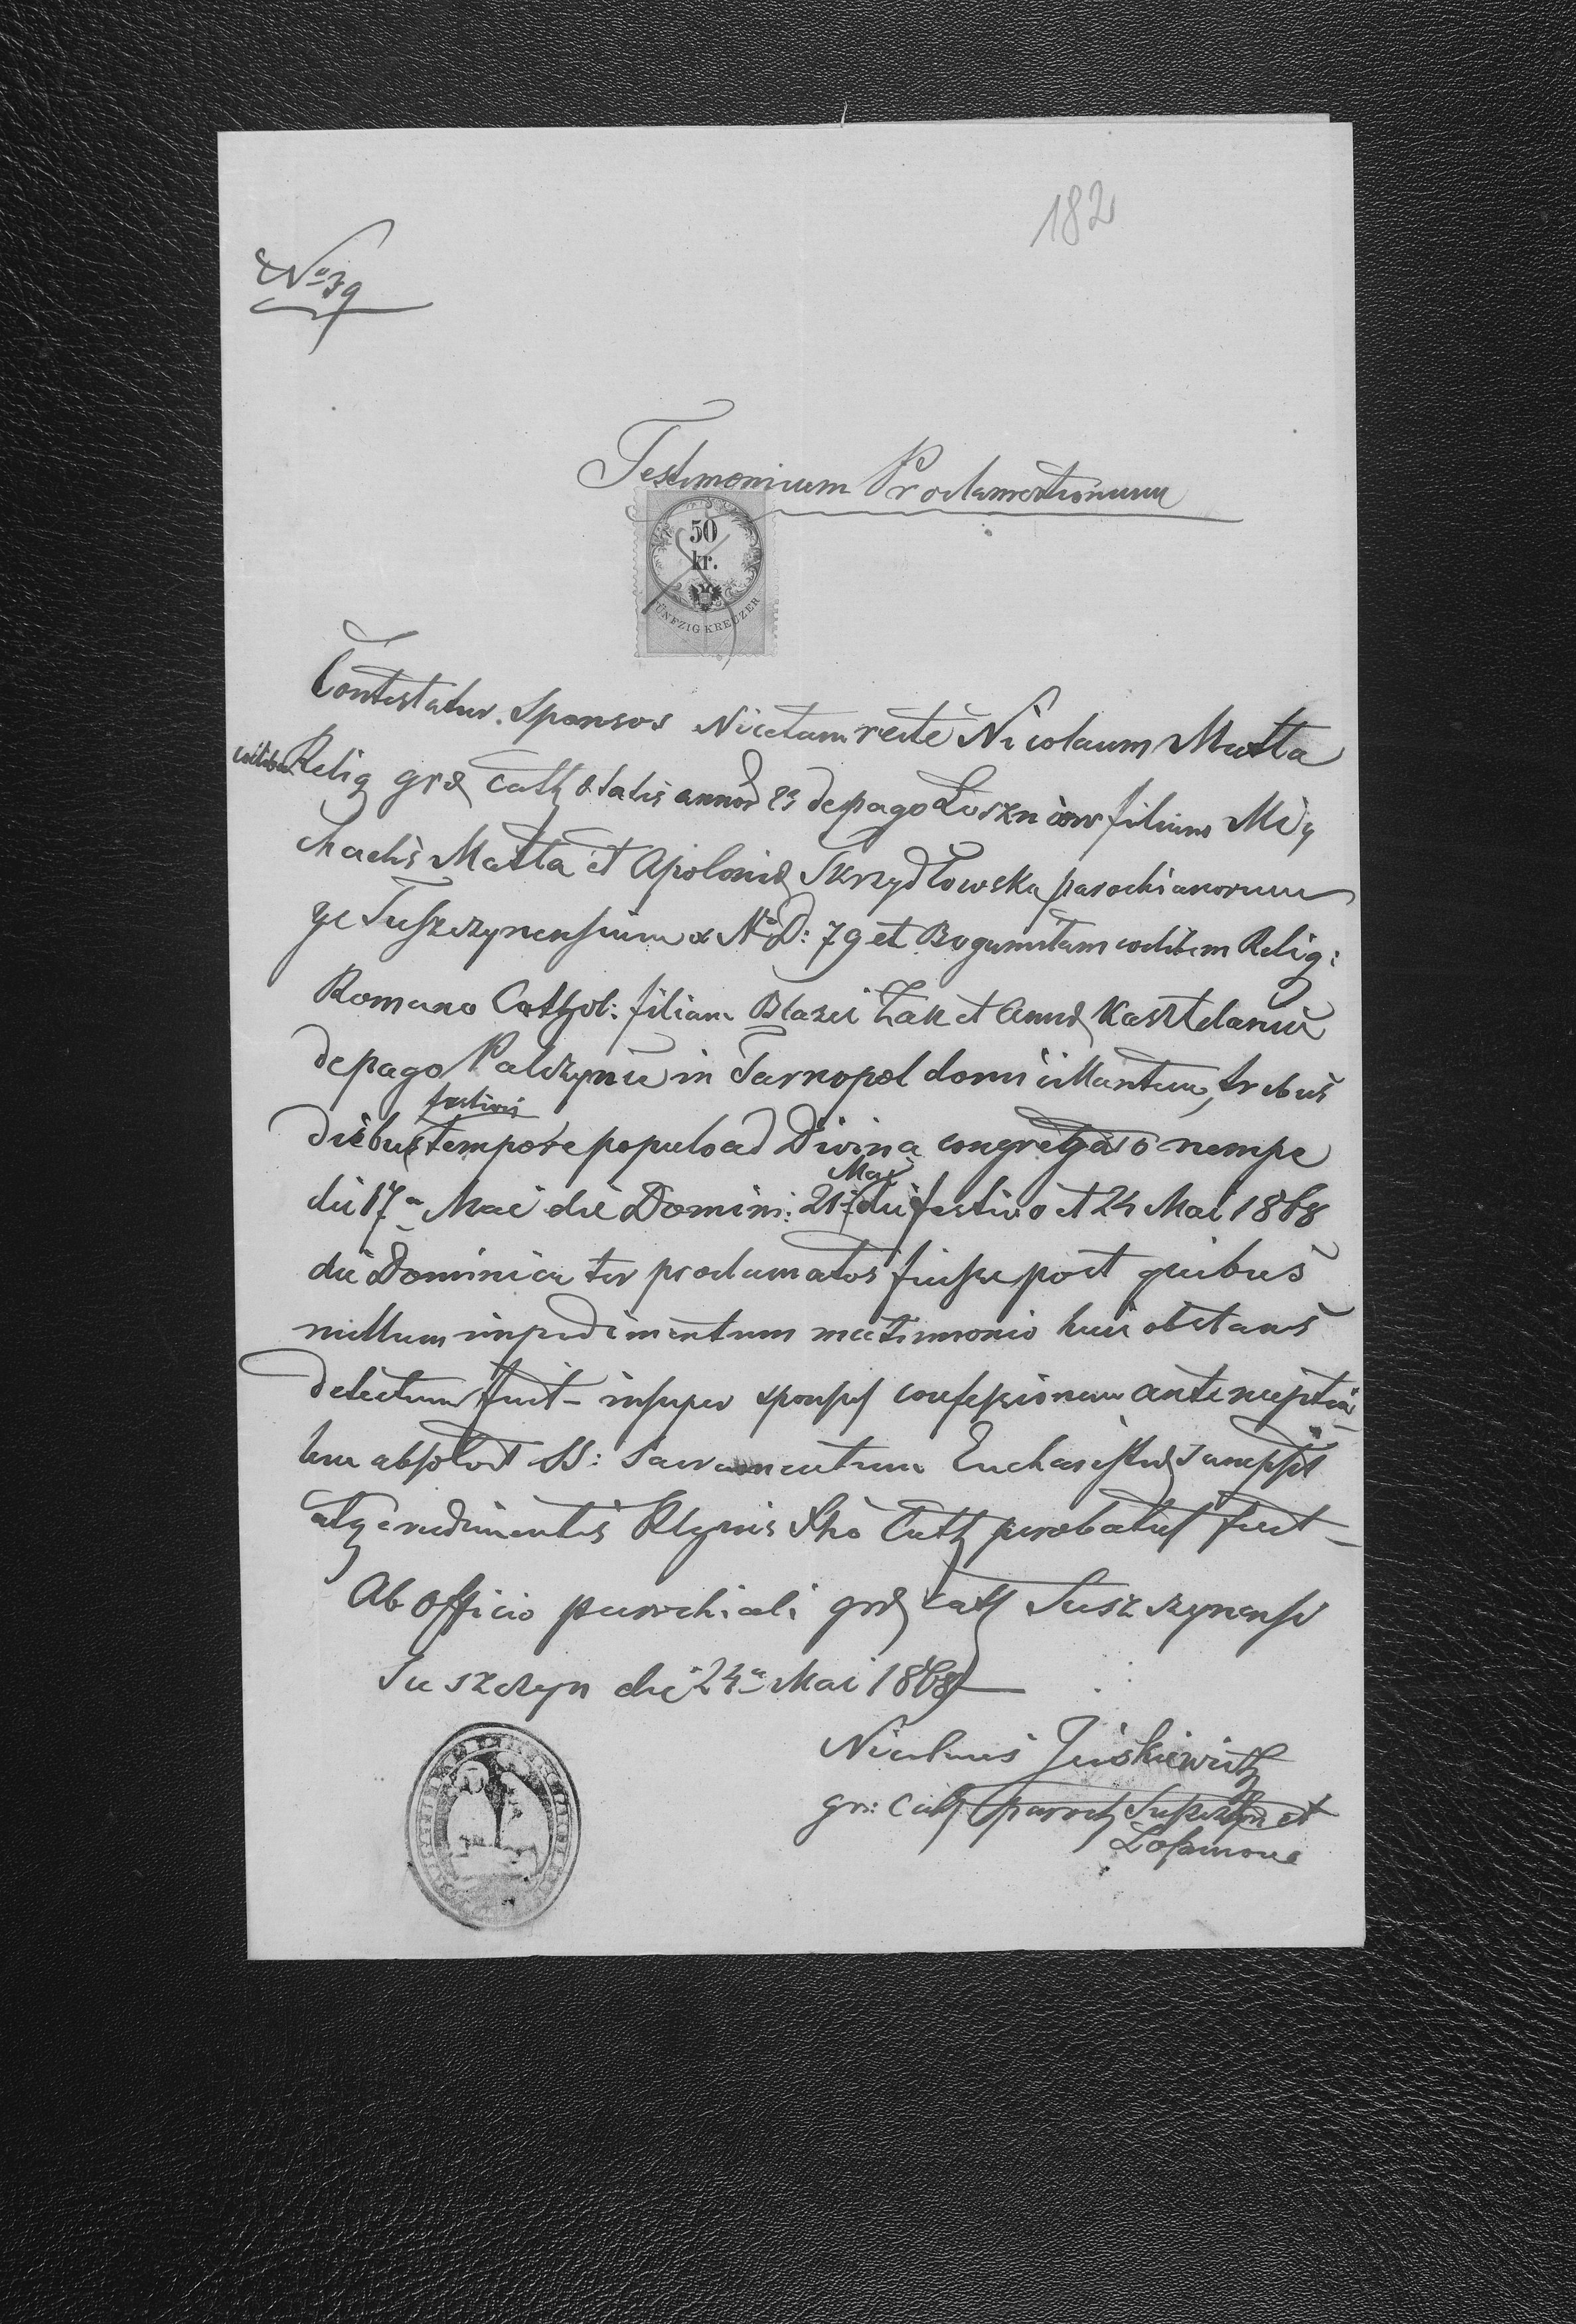 182
No 39
Testimonium Proclamationum
50
kr.
FÜNFZIG KREUZER
Contestatur Sponsos Nicetam recte Nicolaum Matta
Relig græ cath etatis annor de pago Łoszniow filium Mi
chaelis Matta et Apoloniæ Skrzydłowska parochianorum
gc Suszczynensium x No D: 79 et Bogumilam Relig:
Romano Cathol: filiam Blazei Żak et Annæ Kasztelaniu
de pago Palczynie in Tarnopol domicillantem, tribus
festivis
diebus tempore populo ad Divina congregato nempe
Mai
die 17a Mai die Domini: 21a die festivo et 24 Mai 1868
die Dominica ter proclamatos fuisse post quibus
nullum impedimentum matrimonio huic obstans
detectum fuit – insuper sponsus confessionem antenuptia
lem absolvit SS: Sacramentum Eucharistiæ sumpsit
atq rudimentis cath probatus fuit –
Ab Officio parochiali græ cath Suszczynensi
Suszczyn die 24a Mai 1868
Nicolaus Juskiewicz
gr: cath paroch Suszczyn et